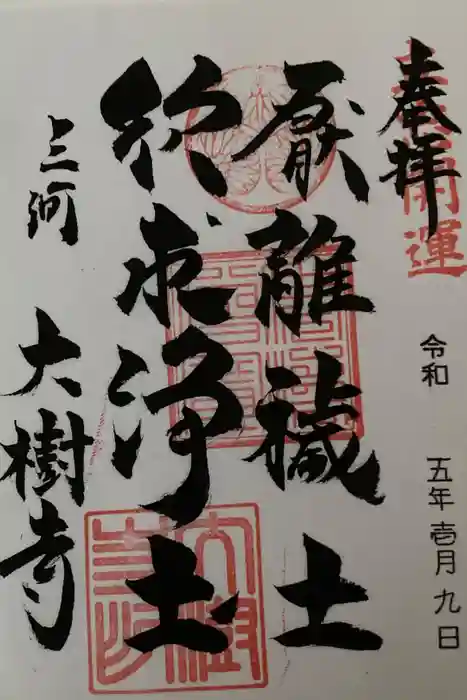 奉拝
開運
令和 五年 壱月 九日
厭離穢土
欣求浄土
三河
大樹寺